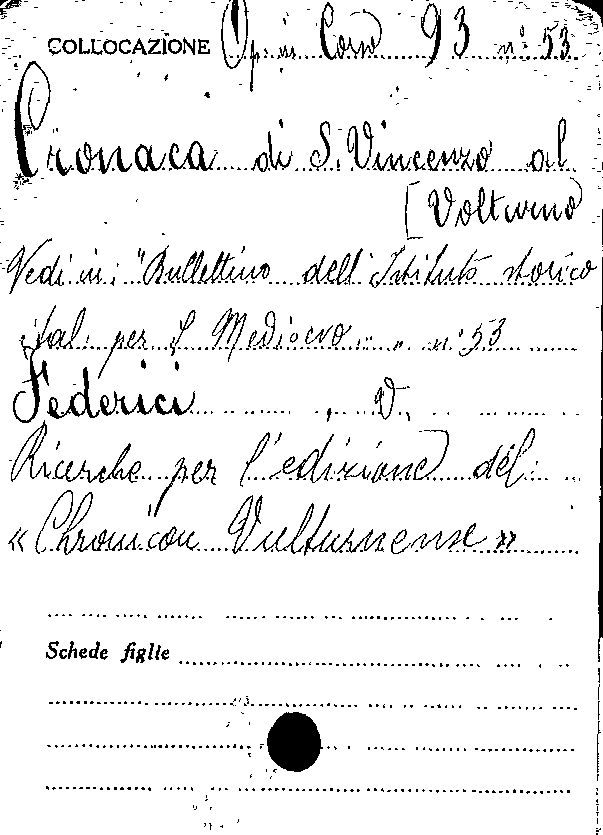 COLLOCAZIONE Op. in Corso 93 n° 53
Cronaca di S. Vincenzo al
[Volturno
Vedi in: "Bullettino dell'Istituto storico
ital. per il Medioevo" n° 53
Federici, V.
Ricerche per l'edizione del
«Chronicon Vulturnense»
Schede figlie